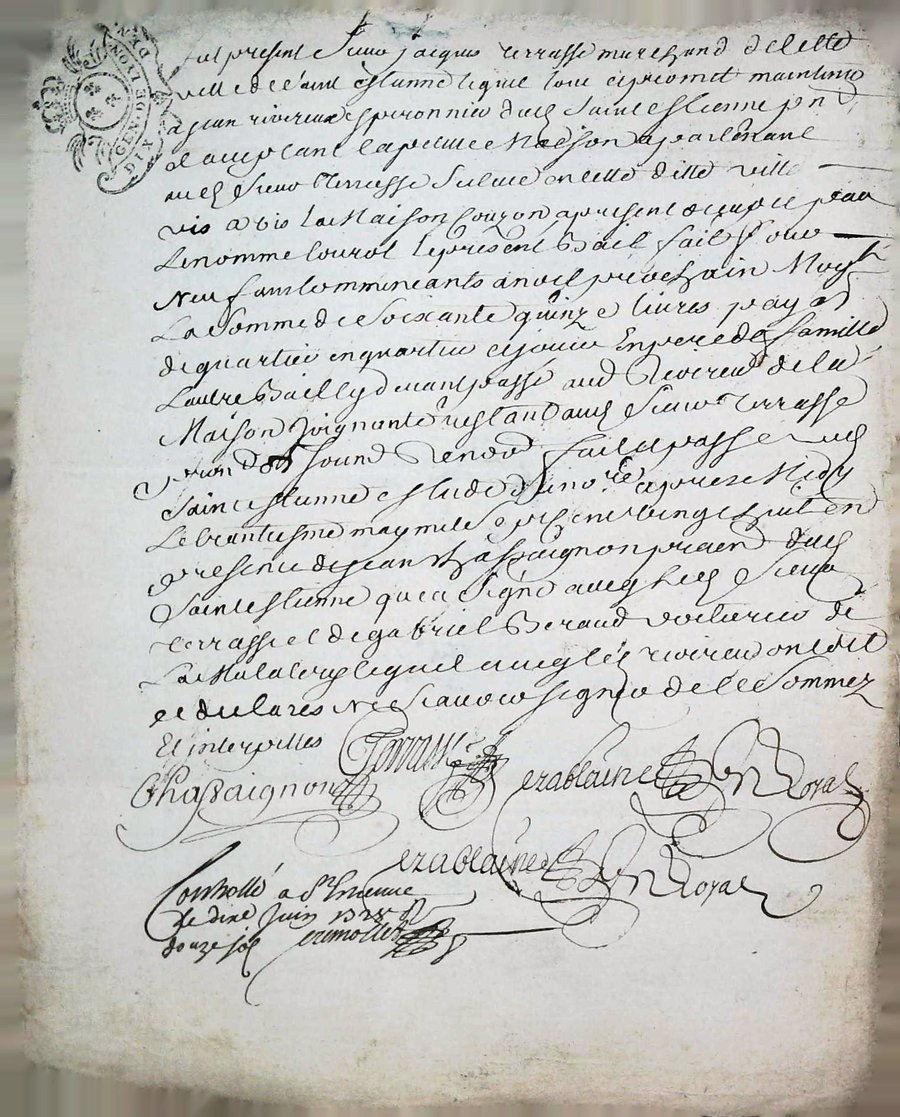 GEN. DE LYON
DIX DEN
fut present Sieur jacques terrasse marchand de cette
ville de saint estienne lequel loue et promet maintenir
a jean riviereux esperonnier dud Saint estienne
et acceptant la petite Maison apartenant
aud Sieur terrasse Scituée en cette ditte ville
vis a vis la Maison Souzon apresent occupée par
Le nommé Courol le present Bail fait pour
Neuf ans Commencants a noel prochain Moyt
La Somme de Soixante quinze livres payés
de quartier en quartier et jouir En pere de famille
L'autre Bail cy devant passé aud Riviereux de la
Maison joignante restant aud Sieur Terrasse
fait et passé aud
Saint estienne estude dud no.re apres Midy
Le trantiesme may mil Sept cent vingt huit en
presence de jean Chassaignon dud
Saint estienne qui a Signé avec led Sieur
terrasse et de gabriel Beraud voiturier de
La lequel avec led riviereux ont dit
et declarés Ne Scavoir signer de ce Sommez
Et interpellés
Terrasse
Chassaignon
ezablaine Nre Royal
ezablaine Nre Royal
Controllé a St Etienne
le dixe Juin 1728 R
douze sols